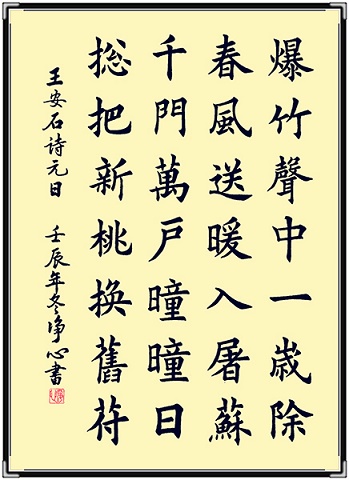 爆竹聲中一歳除
春風送暖入屠蘇
千門萬戶曈曈日
捴把新桃换舊符
王安石诗元日 壬辰年冬净心書